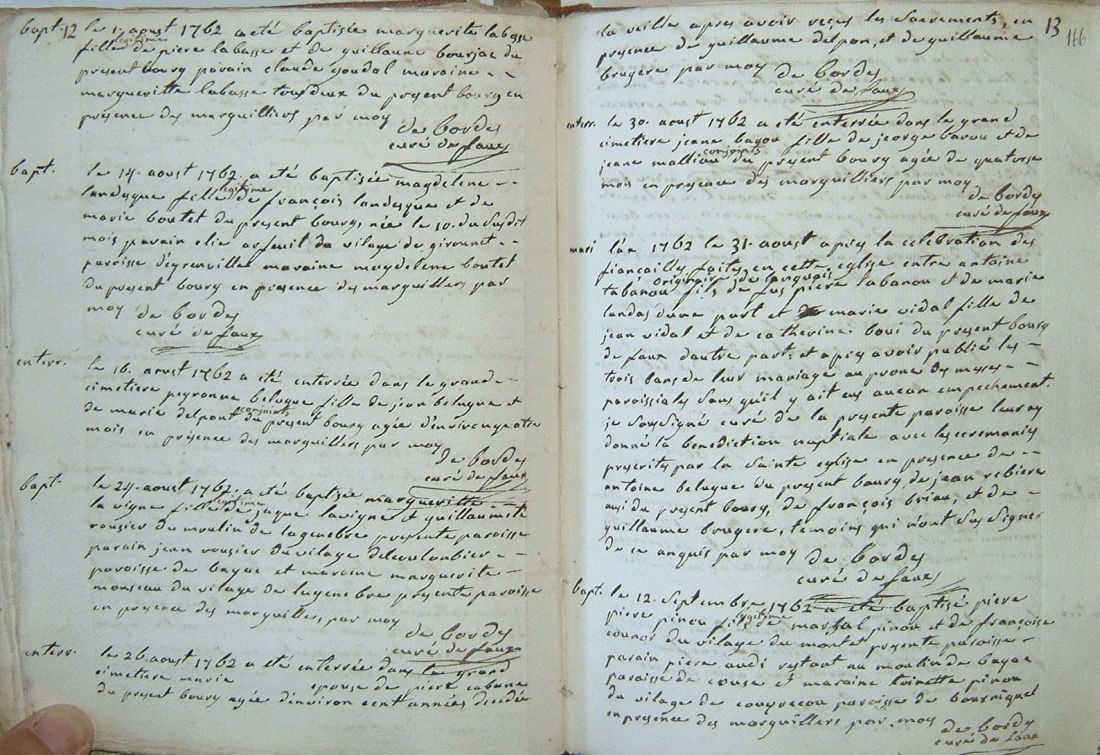 12
bapt. le 1 aoust 1762 a eté baptisée marguerite labasse
legitime
fille de piere labasse et de guillaume bourjac du
present bourg parain claude goudal maraine
margueritte labasse tous deux du present bourg en
présence des marguilliers par moy
de bordes
curé de faux
bapt. le 14. aoust 1762. a eté baptisée magdelene
legitime
landesque fille de françois landesque et de
marie boutet du present bourg, née le 10. du susdit
mois parain elie arfeuil du vilage de girount
paroisse d'eyrenville maraine magdelene boutet
du present bourg en presence des marguilliers par
moy de bordes
curé de faux
enterr. le 16. aoust 1762 a eté enterrée dans le grand
cimetiere peyronne beluque fille de jean beluque et
conjoints
de marie delpont du present bourg agée d'environ
mois en présence des marguilliers par moy
de bordes
curé de faux
bapt. le 24. aoust 1762. a eté baptisée margueritte
legitime
lavigne fille de jaque lavigne et guillaumette
rousier du moulin de lagenebre presente paroisse
parain jean rousier du vilage delcoulombier
paroisse de bayac et maraine marguerite
monseau du vilage de lagenebre presente paroisse
en presence des marguilliers par moy
de bordes
curé de faux
enterr. le 26. aoust 1762 a eté enterrée dans le grand
cimetiere marie epouse de piere cabane
du present bourg agée d'environ cent années decedée
13
166
la veille apres avoir reçeu les sacrements, en
presence de guillaume delpon, et de guillaume
brugere par moy de bordes
curé de faux
enterr. le 30. aoust 1762 a eté enterrée dans le grand
cimetiere jeane bayou fille de jeorge bayou et de
conjoints
jeane malliou du present bourg agée de quatorse
mois en presence des marguilliers par moy
de bordes
curé de faux
mari l'an 1762 le 31. aoust apres la celebration des
fiançailles faites en cette eglise entre antoine
originaire de languais
tabanou fils de feus piere tabanou et de marie
landas d'une part et marie vidal fille de
jean vidal et de catherine boui du present bourg
de faux d'autre part. et apres avoir publié les
trois bans de leur mariage au prone des messes
paroissiales sans qu'il y ait eus aucun empechement
je soussigné curé de la presente paroisse leur ay
donné la benediction nuptiale avec les ceremonies
prescrites par la sainte eglise en presence de
antoine beluque du present bourg, de jean rebiere
aussi du present bourg, de françois briau, et de
guillaume brugere, temoins qui n'ont sus signer
de ce enquis par moy de bordes
curé de faux
bapt. le 12. septembre 1762 a eté baptisé piere
legitime
piere pinou fils de martial pinou et de françoise
counor du vilage du montet presente paroisse
parain piere audi restant au moulin de bayac
paroisse de couse et maraine toinette pinou
du vilage de couyrecou paroisse de bourniquel
en presence des marguilliers par moy
de bordes
curé de faux